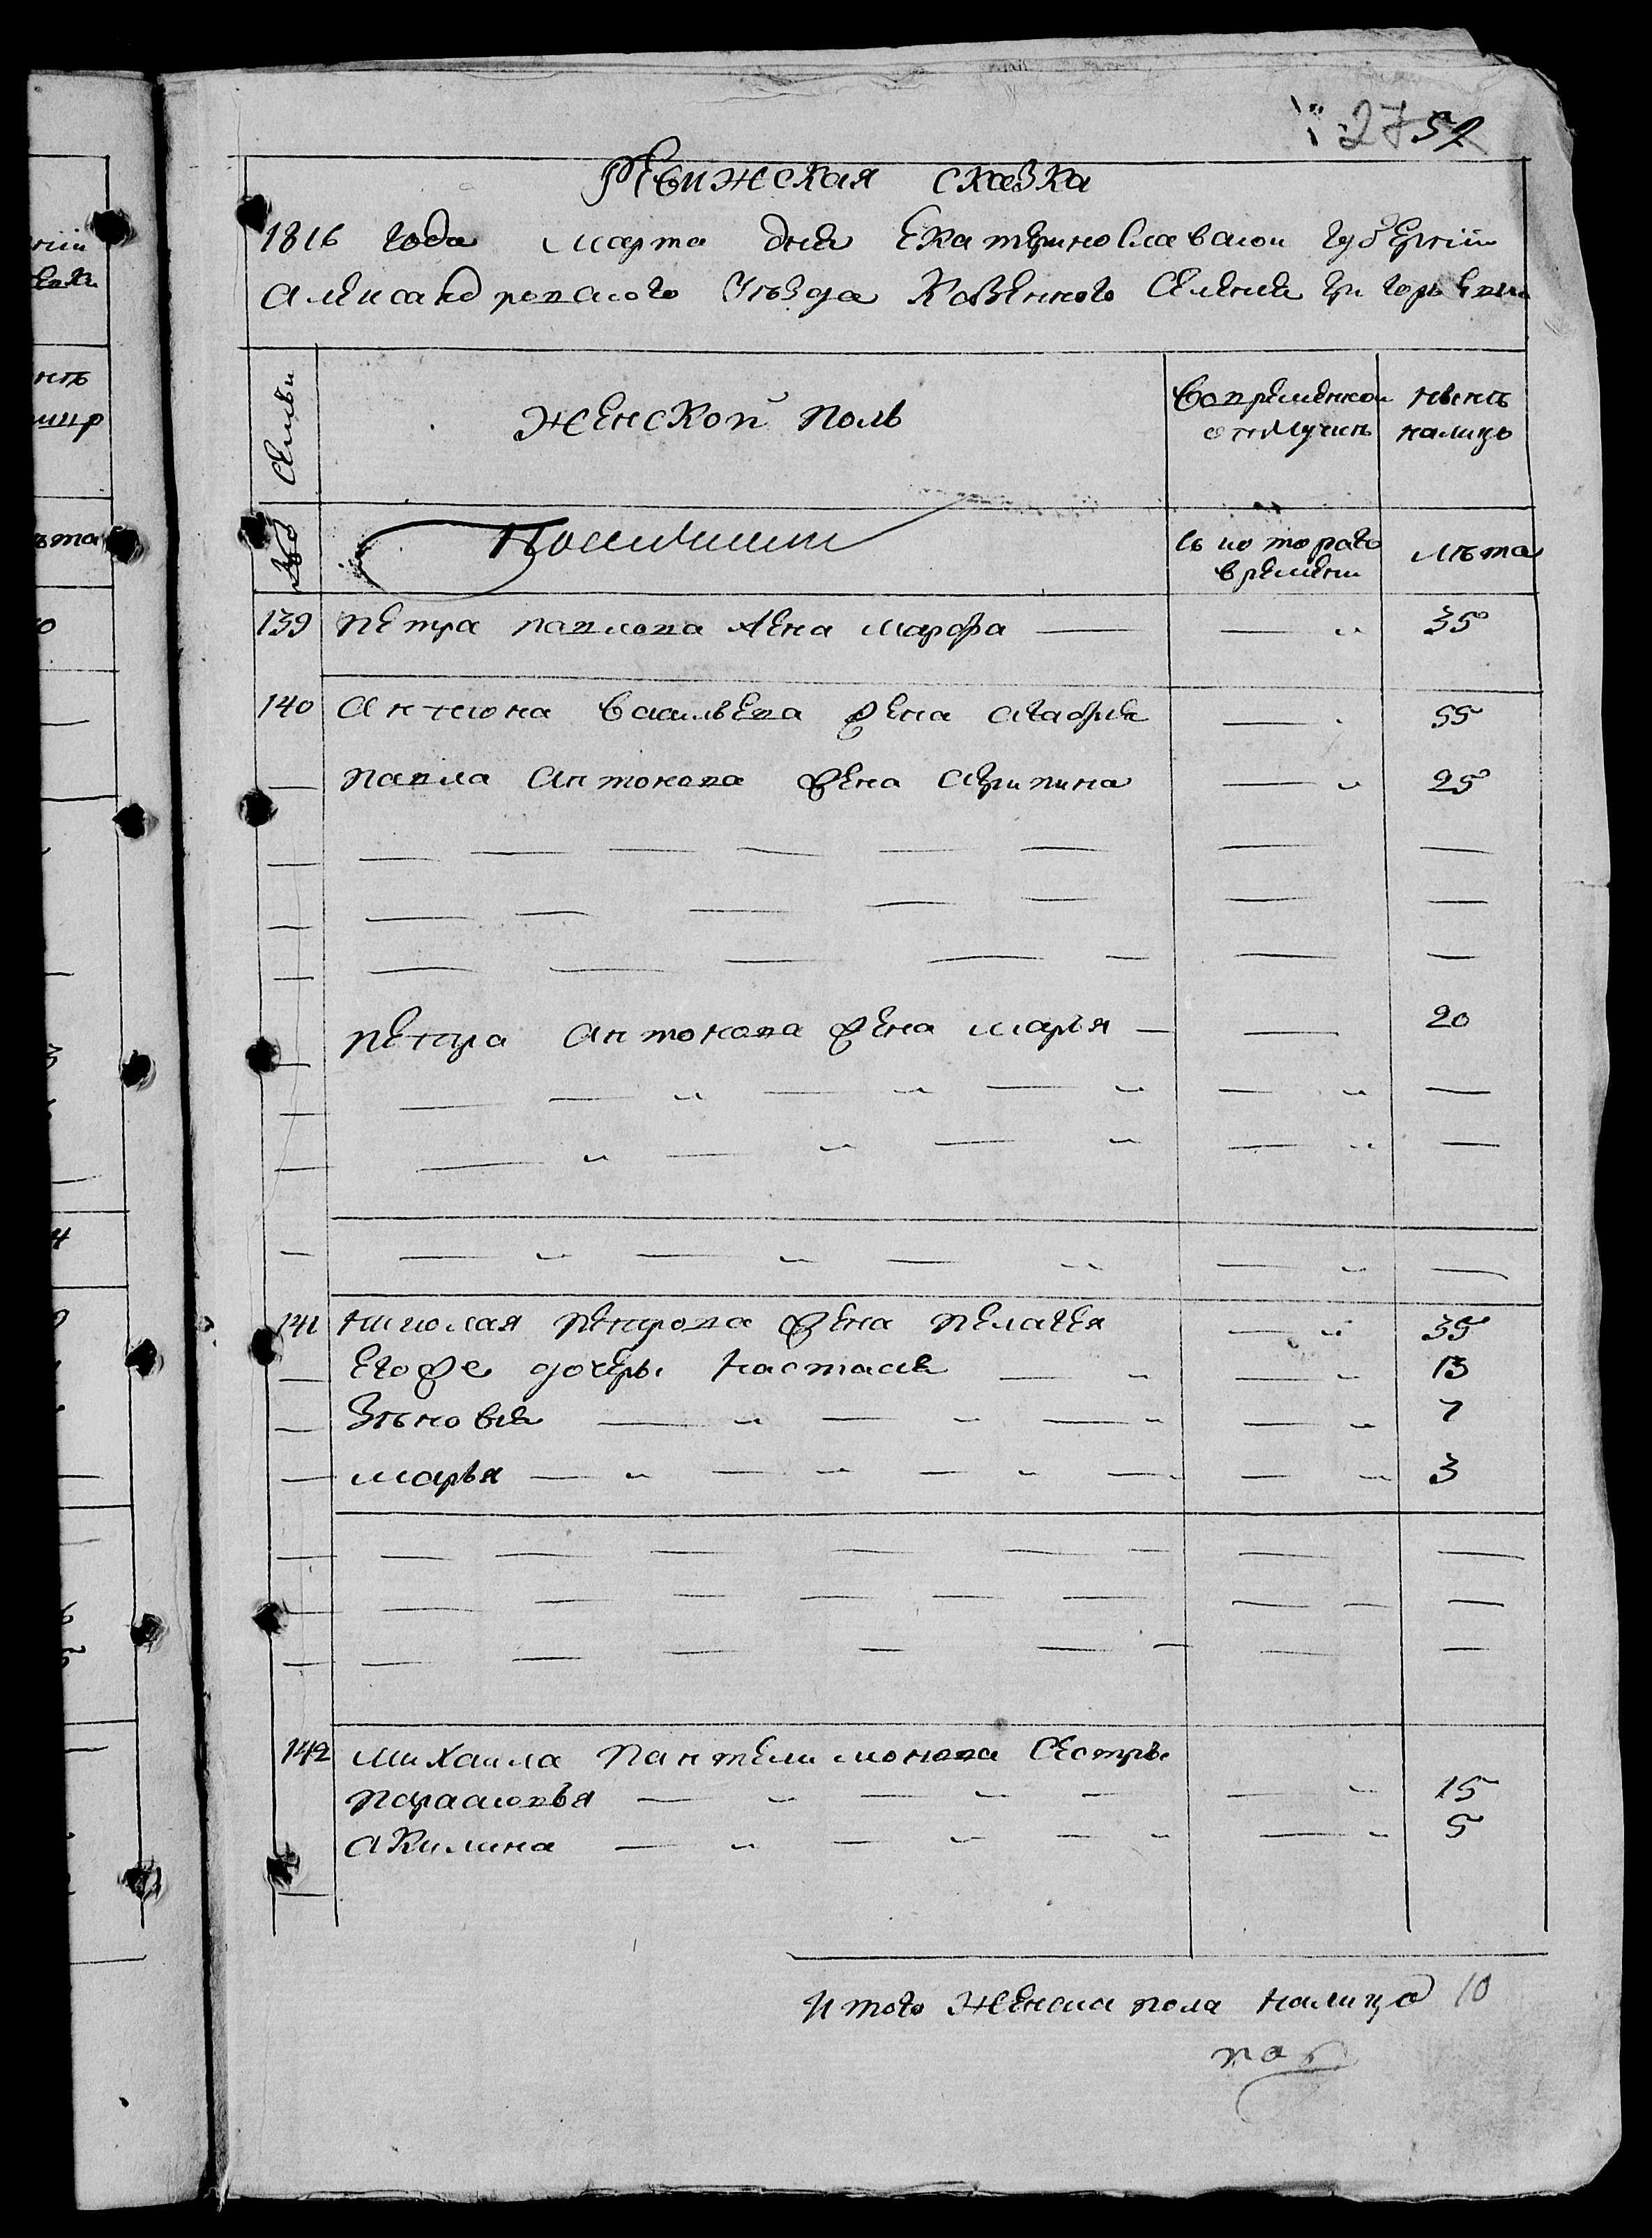 27 52
Ревижская сказка
1816 года марта дня Екатеринославской губернии
Александровского Уезда Казенного Селения Григорьевки
Семьи
женской поль
Во временной ныне
отлучке налицо
№
съ которого лета
времени
139 Петра павлова жена марфа — — „ 35
140 Антона Васильева жена агафия — 55
— павла Антонова жена агрипина — „ 25
петра Антонова жена марья — — 20
141 николая петрова жена пелагея — „ 35
— Егоже дочери настасия — „ — „ 13
— Зеновия — „ — „ — „ — „ 7
— марья — „ — „ — „ — — — 3
142 михаила пантелимонова сестры
парасковья — „ — „ — — „ 15
акилина — „ — „ — „ — „ 5
Итого женска пола налицо 10